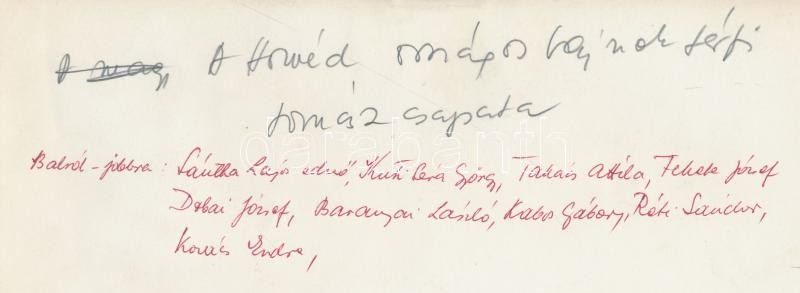 A mag A Honvéd országos bajnok férfi
tornász csapata
Balról - jobbra: Sántha Lajos edző, Kuti Béla György, Takács Attila, Fekete József
Dobai József, Baranyai László, Kabos Gábory, Réti Sándor,
Kovács Endre,
darabanth